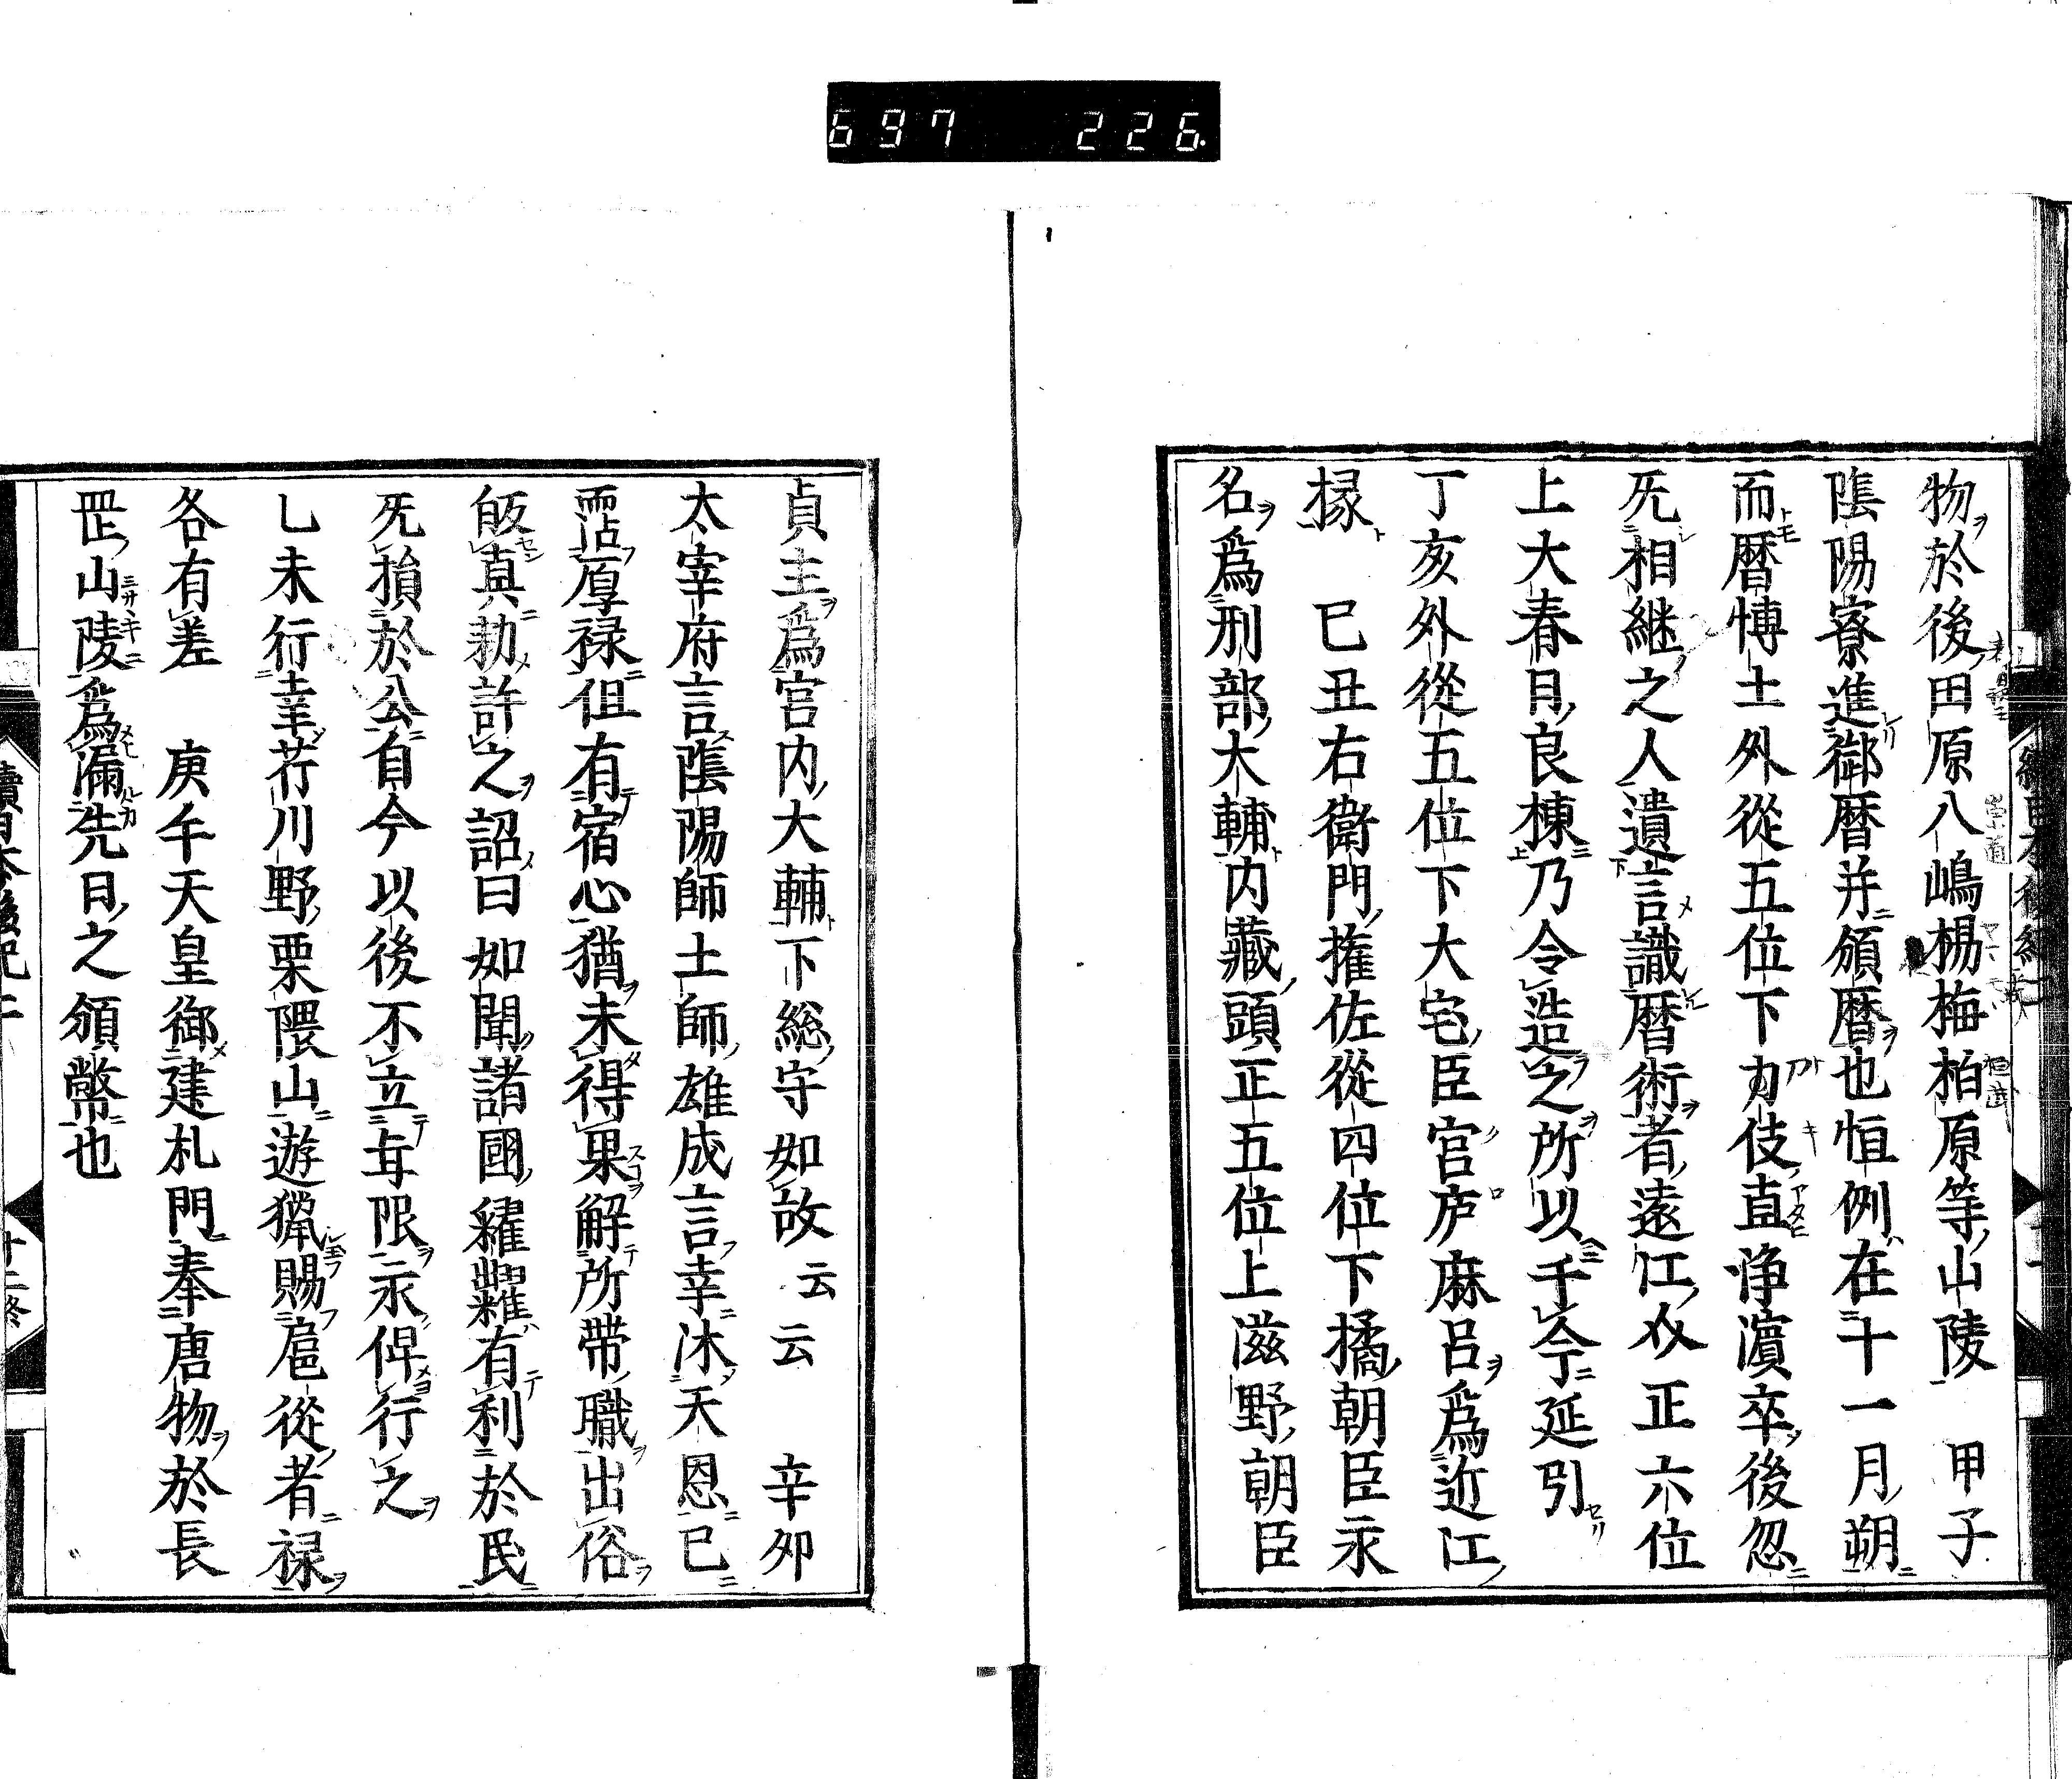 697 226.
物於後田原八嶋楊梅柏原等山陵 甲子
陰陽寮進御暦并頒暦也恒例在十一月朔
而暦博士外從五位下刀伎直浄濱卒後忽
死相継之人遺言識暦術者遠江介正六位
上大春日良棟乃令造之所以千今延引
丁亥外從五位下大宅臣宮庐麻呂爲近江
掾 巳丑右衛門權佐從四位下橘朝臣永
名爲刑部大輔内藏頭正五位上滋野朝臣
貞主爲宮内大輔下総守如故云云 辛夘
太宰府言陰陽師土師雄成言幸沐天恩已
霑厚禄但有宿心猶未得果解所帶職出俗
皈真勅許之詔曰如聞諸國糴糶有利於民
死損於公自今以後不立年限永俾行之
乚未行幸芹川野栗隈山遊獵賜扈從者禄
各有差 庚午天皇御建礼門奉唐物於長
罡山陵爲漏先日之頒幣也
續日本後紀二 十二終